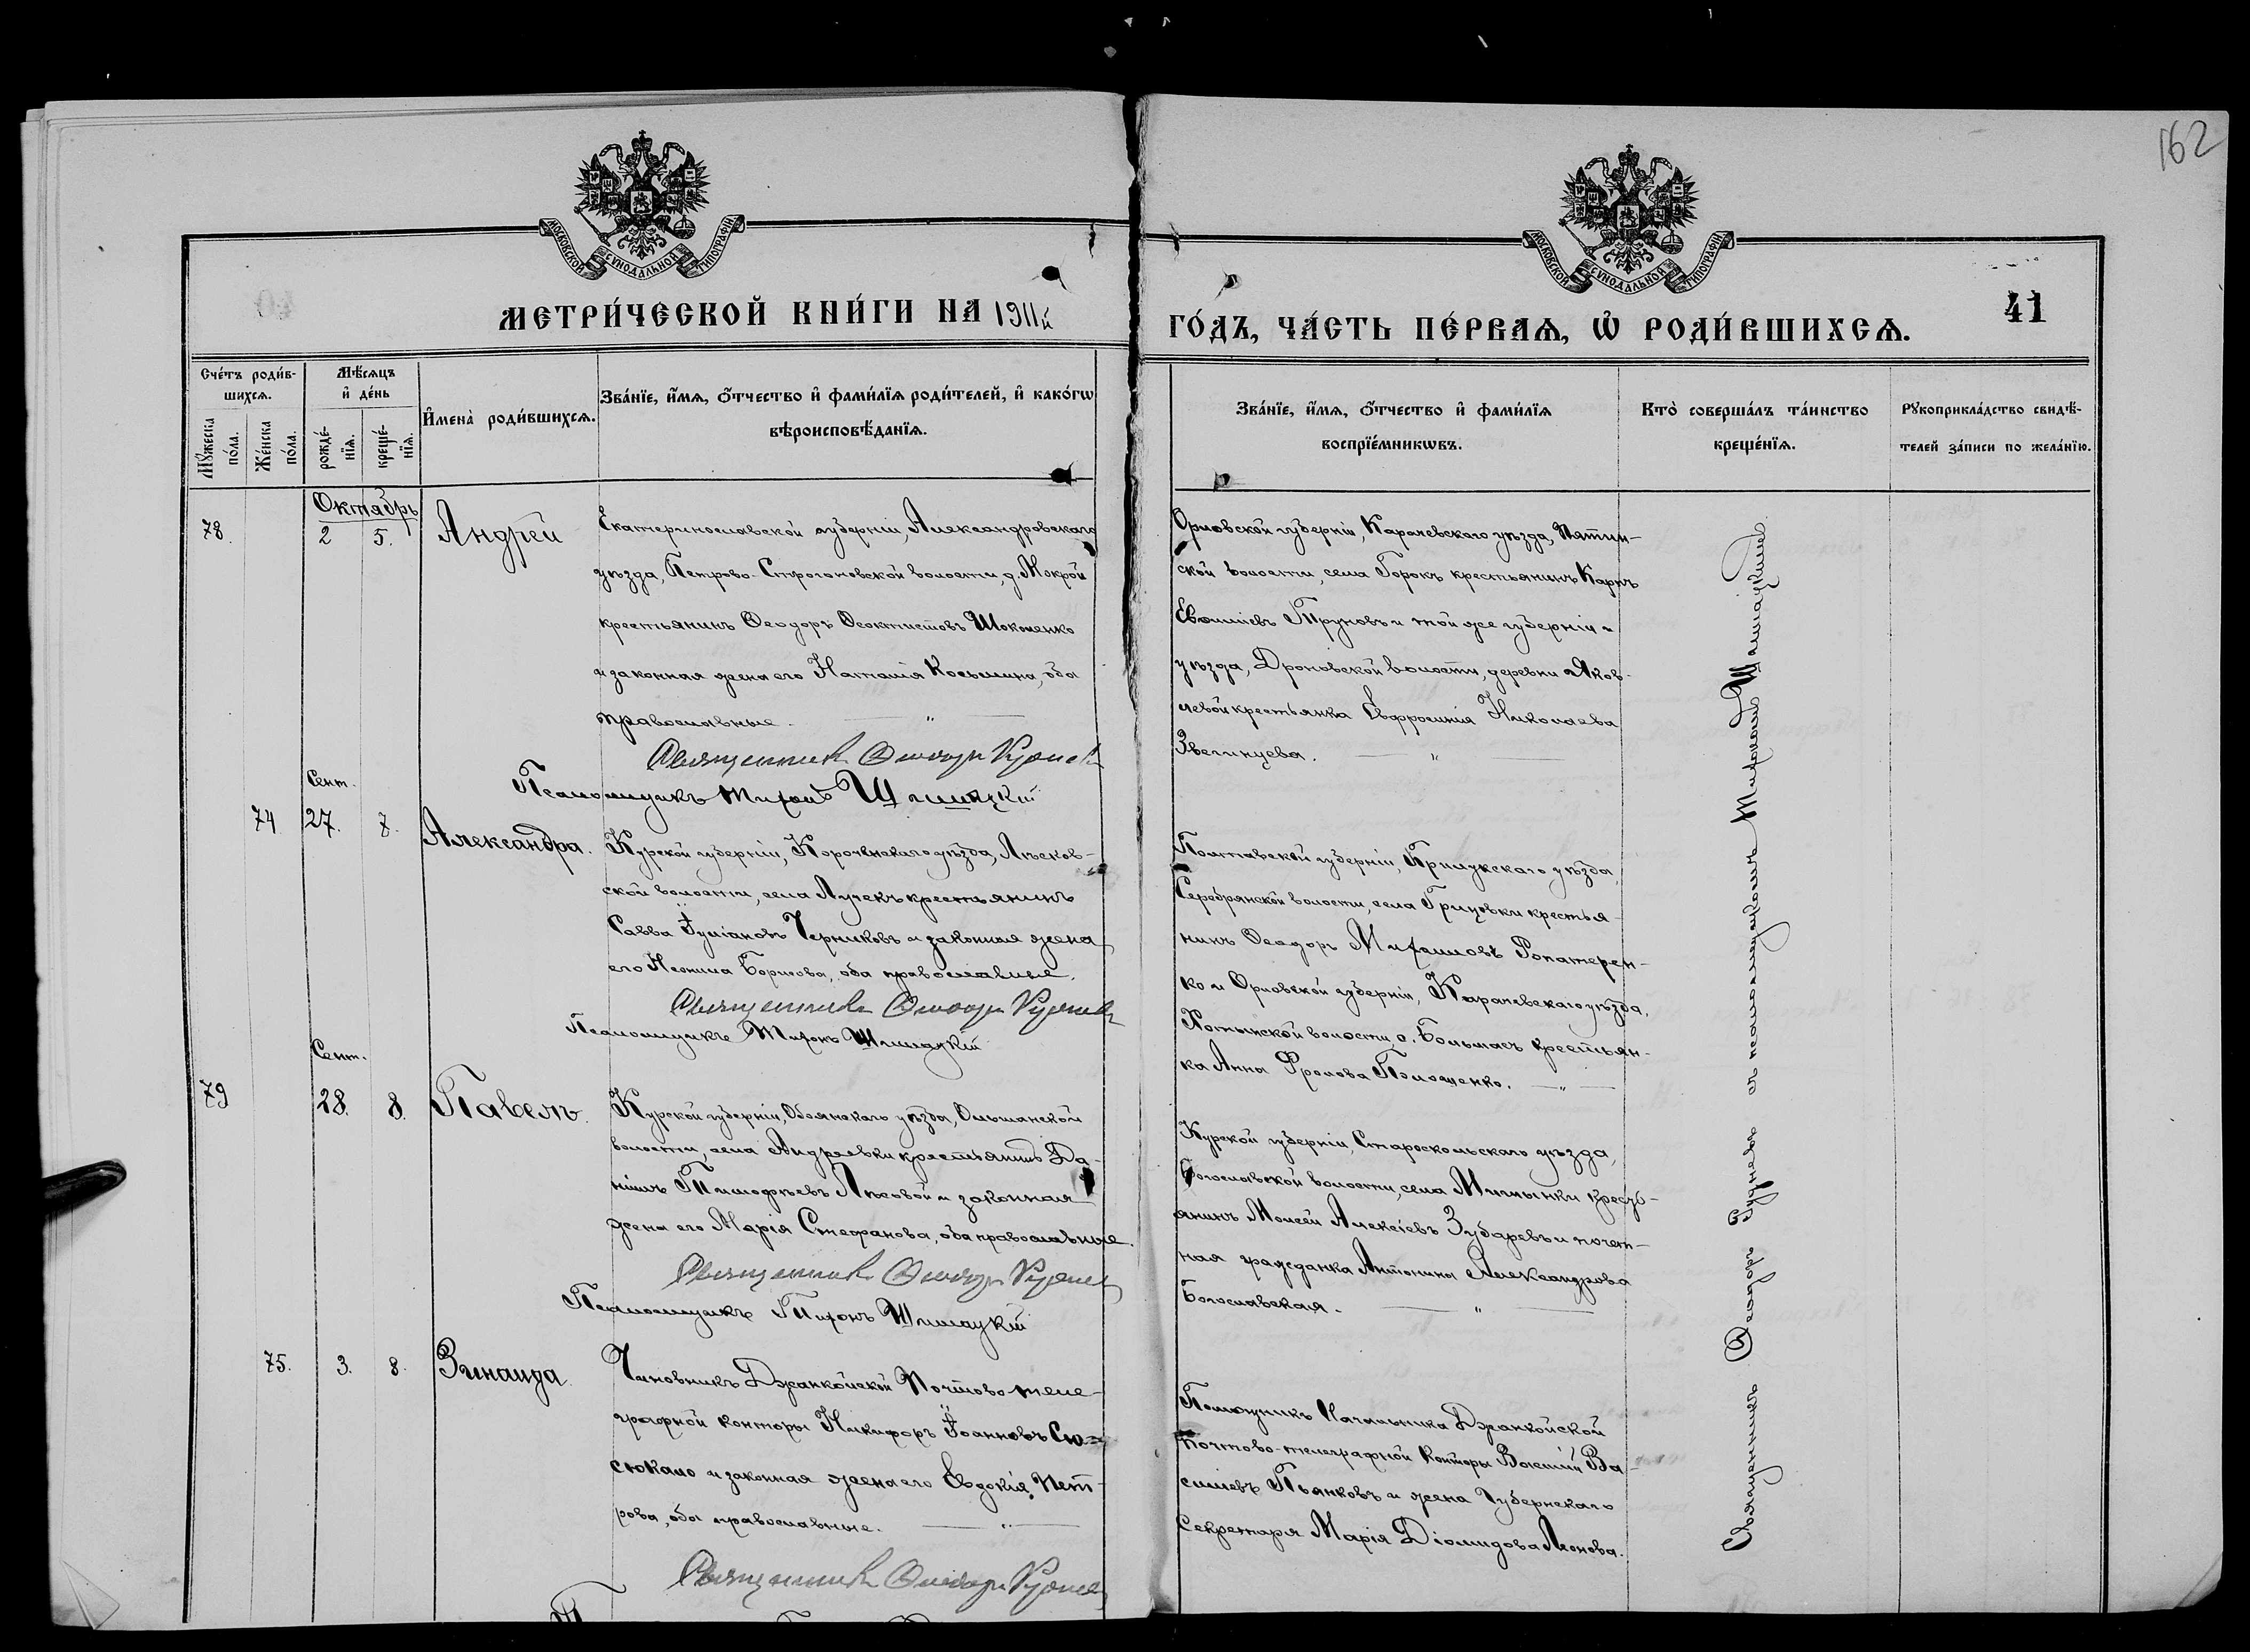 162
МОСКОВСКОЙ СѴНОДАЛЬНОЙ ТИПОГРАФІИ
МОСКОВСКОЙ СѴНОДАЛЬНОЙ ТИПОГРАФІИ
МЕТРИ́ЧЕСКОЙ КНИ́ГИ НА 1911й
ГО́ДЪ, ЧА́СТЬ ПЕ́РВАѦ, Ѡ РОДИ́ВШИХСѦ.
41
Сче́тъ роди́в-
шихсѧ.
Мꙋ́жеска
по́ла.
Же́нска
по́ла.
Мѣ́сѧцъ
и҆ де́нь
рожде́-
нїѧ.
креще́-
нїѧ.
И҆мена̀ роди́вшихсѧ.
Зва́нїе, и҆́мѧ, ѻ҆́тчество и҆ фами́лїѧ роди́телей, и҆ како́гѡ
вѣроисповѣ́данїѧ.
Зва́нїе, и҆́мѧ, ѻ҆́тчество и҆ фами́лїѧ
воспрїе́мникѡвъ.
Кто̀ соверша́лъ та́инство
креще́нїѧ.
Рꙋкоприкла́дство свидѣ́-
телей за́писи по жела́нїю.
Октябрь
78.
2
5.
Андрей
Екатеринославской губерніи, Александровскаго
уѣзда, Петрово-Строгоновской волости, д. Мокрой
крестьянинъ Ѳеодоръ Ѳеоктистовъ Шокоменко
и законная жена его Наталія Косьмина, оба
православные.
Священникъ Ѳеодоръ
Псаломщикъ Тихонъ Шишацкій
Орловской губерніи, Карачевскаго уѣзда, Пятин-
ской волости, села Горокъ крестьянинъ Карпъ
Труновъ и той же губерніи и
уѣзда, Дроновской волости, деревни Яков-
левой крестьянка Евфросинія Николаева
Звегинцева.
Сент.
74
27.
7.
Александра.
Курской губерніи, Корочанскаго уѣзда, Лѣсков-
ской волости, села Лучекъ крестьянинъ
Савва Іуліановъ Черниковъ и законная жена
его Неонила Борисова, оба православные.
Священникъ Ѳеодоръ
Псаломщикъ Тихонъ Шишацкій
Полтавской губерніи, Прилукскаго уѣзда,
Серебрянской волости, села Грицовки крестья-
нинъ Ѳеодоръ Михаиловъ Ропатерен-
ко и Орловской губерніи, Карачевскаго уѣзда,
волости, с. крестьян-
ка Анна Фролова Полощенко.
Сент.
79
28.
8.
Павелъ.
Курской губерніи, Обоянскаго уѣзда, Ольшанской
волости, села Андреевки крестьянинъ Да-
ніилъ Тимофѣевъ Лѣсовой и законная
жена его Марія Стефанова, оба православные.
Священникъ Ѳеодоръ
Псаломщикъ Тихонъ Шишацкій
Курской губерніи, Староскольскаго уѣзда,
Богославской волости, села кресть-
янинъ Моисей Алексіевъ Зубаревъ и почет-
ная гражданка Антонина Александрова
Богославская.
75.
3.
8.
Зинаида.
Чиновникъ Джанкойской Почтово теле-
графной конторы Никифоръ Іоанновъ Сю-
сюкало и законная жена его Евдокія Пет-
рова, оба православные.
Священникъ Ѳеодоръ
Помощникъ Начальника Джанкойской
Почтово-телеграфной Конторы Василій Ва-
сильевъ Пьянковъ и жена Губернскаго
Секретаря Марія Діомидова Леонова.
Священникъ Ѳеодоръ и псаломщикъ Тихонъ Шишацкій